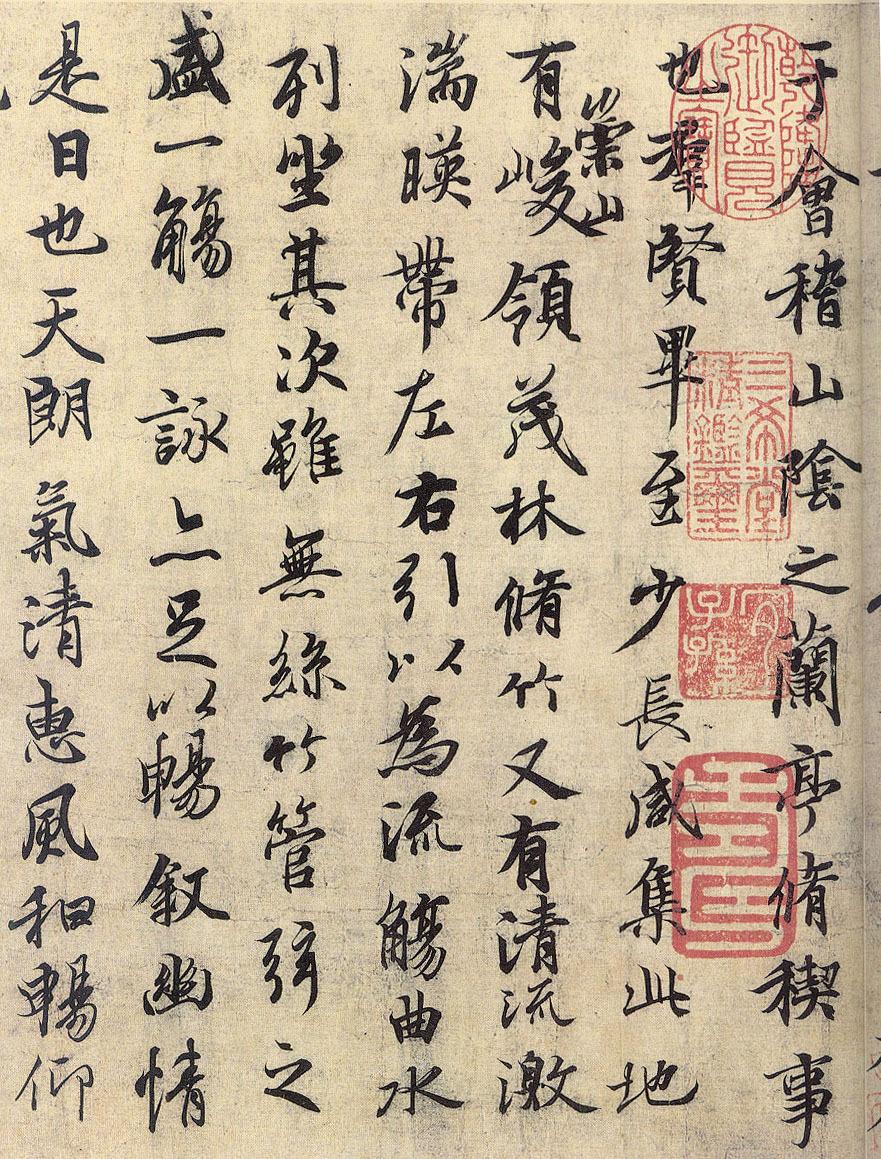 于會稽山陰之蘭亭脩稧事
也羣賢畢至少長咸集此地
崇山
有峻領茂林脩竹又有清流激
湍暎帶左右引以為流觴曲水
列坐其次雖無絲竹管弦之
盛一觴一詠亦足以暢敘幽情
是日也天朗氣清惠風和暢仰
乾隆御覽之寶
三希堂精鑑璽
宜子孫